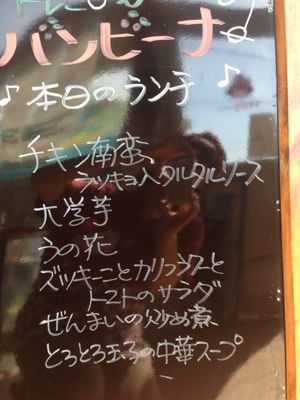 バンビーナ
♪本日のランチ♪
チキン南蛮、
ラッキョ入タルタルソース
大学芋
うの花
ズッキーニとカリフラワーと
トマトのサラダ
ぜんまいの炒め煮
とろとろ玉子の中華スープ